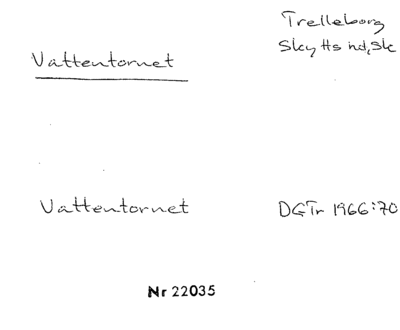 Trelleborg
Skytts hd, Sk
Vattentornet
Vattentornet DGTr 1966:70
Nr 22035